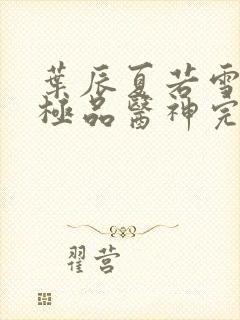 葉辰夏若雪
極品醫神完
翟营